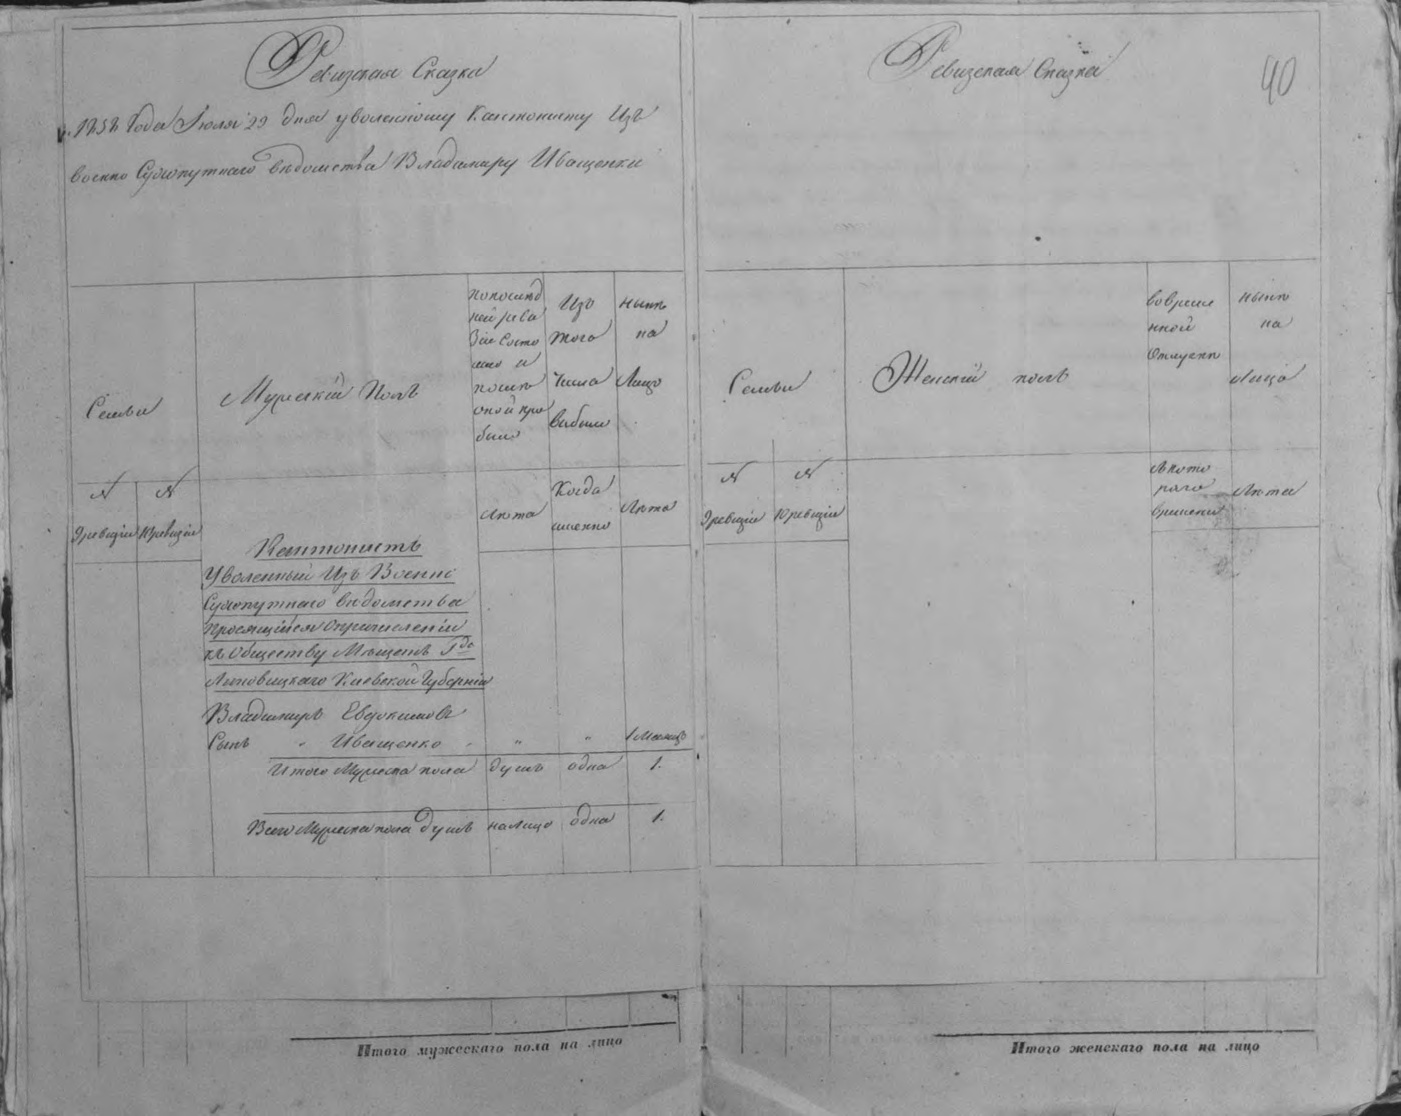 Ревизская Сказка
1858 Года Июля 29 дня уволенному Кантонисту Изъ
военно Сухопутнаго вѣдомства Владимиру Иващенки
Семьи
Мужескій Полъ
По послѣд
ней реви
зіи Состо
яло и
послѣ
оной при
было
Изъ
того
Числа
выбыло
Нынѣ
на
Лицо
N
N
9 ревизіи
10 ревизіи
Лѣта
Когда
именно
Лѣта
Кантонистъ
Уволенный Изъ Военно
Сухопутнаго вѣдомства
просящійся о причисленіи
къ Обществу Мѣщанъ Гда
Липовицкаго Кіевской Губерніи
Владимиръ Евдокимовъ
Сынъ " Иващенко " " 1 Мѣсяцъ
Итого Мужеска пола душъ одна 1.
Всего Мужеска пола душъ на Лицо одна 1.
Итого мужескаго пола на лицо
Ревизская Сказка
40
Семьи
Женскій полъ
Во времен
ной
Отлучкѣ
Нынѣ
на
Лицо
N
N
9 ревизіи
10 ревизіи
Съ кото
раго
времени
Лѣта
Итого женскаго пола на лицо